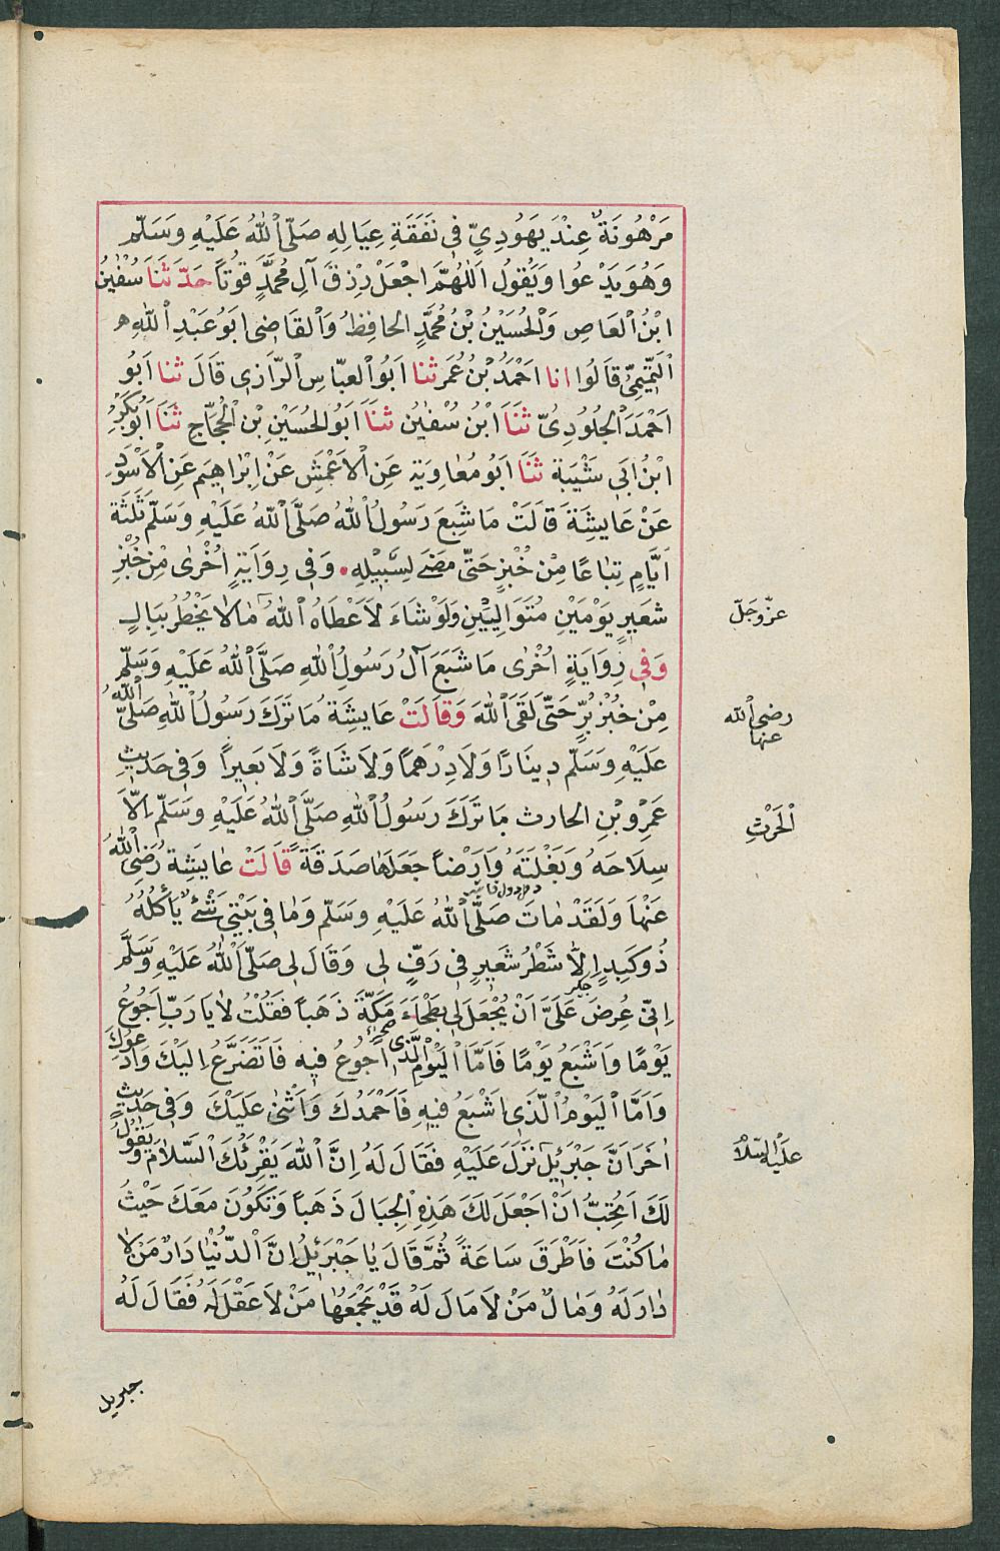 مَرْهُونَةٌ عِنْدَ يَهُودِيٍّ فِي نَفَقَةِ عِيَالِهِ صَلَّى اللّٰهُ عَلَيْهِ وَسَلَّم
وَهُوَ يَدْعُوا وَيَقُولُ اَللّٰهُمَّ اجْعَلْ رِزْقَ آلِ مُحَمَّدٍ قُوتًا حَدَّثَنَا سُفْيٰنُ
ابْنُ الْعَاصِ وَالْحُسَيْنُ بْنُ مُحَمَّدٍ الحَافِظُ وَالْقَاضِى اَبُو عَبْدِ اللّٰهِ
التَّمِيمِيُّ قَالُوا انا اَحْمَدُ بْنُ عُمَرَ ثنا اَبُو الْعَبَّاسِ الرَّازِي قَالَ ثنا اَبُو
اَحْمَدَ الْجُلُودِيُّ ثَنَا ابْنُ سُفْيٰن ثَنَا اَبُو الْحُسَيْنِ بْنِ الْحَجَّاجِ ثَنَا اَبُو بَكْرِ
ابْنُ اَبِي شَيْبَةَ ثَنَا اَبُو مُعَاوِيَةِ عَنِ الْاَعْمَشِ عَنْ اِبْرَاهِيمَ عَنِ الْاَسْوَدِ
عَنْ عَايِشَةَ قَالَتْ مَا شَبِعَ رَسُولُ اللّٰهِ صَلَّى اللّٰهُ عَلَيْهِ وَسَلَّمَ ثَلٰثَةَ
اَيَّامٍ تِبَاعًا مِنْ خُبْزٍ حَتَّى مَضَى لِسَبِيْلِهِ وَفِي رِوَايَةٍ اُخْرَى مِنْ خُبْزِ
شَعِيرٍ يَوْمَيْنِ مُتَوَالِيَيْنِ وَلَوْ شَاءَ لَاَعْطَاهُ اللّٰهُ مَا لَا يَخْطُرُ بِبَالٍ
عزّ وجلّ
وَفِي رِوَايَةٍ اُخْرَى مَا شَبِعَ آلُ رَسُولِ اللّٰهِ صَلَّى اللّٰهُ عَلَيْهِ وَسَلَّم
مِنْ خُبْزِ بُرٍّ حَتَّى لَقِيَ اللّٰهَ وَقَالَتْ عَايِشَةُ مَا تَرَكَ رَسُولُ اللّٰهِ صَلَّى اللّٰهُ
رضى الله عنها
عَلَيْهِ وَسَلَّم دِينَارًا وَلَا دِرْهَمًا وَلَا شَاةً وَلَا بَعِيرًا وَفِي حَدِيثِ
عَمْرِو بْنِ الحارث مَا تَرَكَ رَسُولُ اللّٰهِ صَلَّى اللّٰهُ عَلَيْهِ وَسَلَّم اِلَّا
الْحَرْثِ
سِلَاحَهُ وَبَغْلَتَهُ وَاَرْضًا جَعَلَهَا صَدَقَةً قَالَتْ عَايِشَة رَضِىَ اللّٰهُ
عَنْهَا وَلَقَدْ مَاتَ صَلَّى اللّٰهُ عَلَيْهِ وَسَلَّم وَمَا فِى بَيْتِي شَيْءٌ يَأْكُلُهُ
ذُو كَبِدٍ اِلَّا شَطْرُ شَعِيرٍ فِي رَفٍّ لِى وَقَالَ لِى صَلَّى اللّٰهُ عَلَيْهِ وَسَلَّمَ
اِنِّي عُرِضَ عَلَيَّ اَنْ يُجْعَلَ لِى بَطْحَاءَ مَكَّةَ ذَهَبًا فَقُلْتُ لَا يَا رَبِّ اَجُوعُ
يَوْمًا وَاَشْبَعُ يَوْمًا فَاَمَّا الْيَوْمُ الَّذِى اَجُوعُ فِيهِ فَاَتَضَرَّعُ اِلَيْكَ وَاَدْعُوكَ
وَاَمَّا الْيَوْمُ الَّذِى اَشْبَعُ فِيهِ فَاَحْمَدُكَ وَاُثْنِى عَلَيْكَ وَفِي حَدِيثٍ
اٰخَرَ اَنَّ جَبْرَئِيلَ نَزَلَ عَلَيْهِ فَقَالَ لَهُ اِنَّ اللّٰهَ يَقْرِئُكَ السَّلَامَ وَيَقُولُ
عَلَيْهِ السَّلَامُ
لَكَ اَتُحِبُّ اَنْ اَجْعَلَ لَكَ هَذِهِ الْجِبَالَ ذَهَبًا وَتَكُونَ مَعَكَ حَيْثُ
مَا كُنْتَ فَاَطْرَقَ سَاعَةً ثُمَّ قَالَ يَا جَبْرَئِيلُ اِنَّ الدُّنْيَا دَارُ مَنْ لَا
دَارَ لَهُ وَمَالُ مَنْ لَا مَالَ لَهُ قَدْ يَجْمَعُهَا مَنْ لَا عَقْلَ لَهُ فَقَالَ لَهُ
جبريل